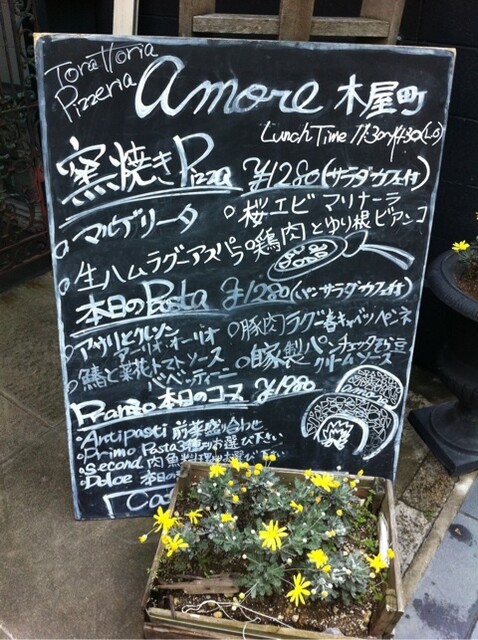 Torattoria
Pizzeria
amore 木屋町
Lunch Time 11:30~14:30(L.O)
窯焼きPizza ¥1280(サラダ カフェ付)
。マルゲリータ 。桜エビ マリナーラ
。生ハムラグーアスパラ 。鶏肉とゆり根ビアンコ
本日のPasta ¥1280(パン サラダ カフェ付)
。アサリとクレソン
アーリオ・オーリオ
。豚肉ラグー春キャベツペンネ
。鯖と菜花トマトソース
ベベッティーニ
。自家製パンチェッタそら豆
クリームソース
Pranzo 本日のコース ¥1980
。Antipasti 前菜盛り合わせ
。Primo Pasta3種よりお選び下さい
。Second 肉魚料理よりお選び下さい
。Dolce 本日の